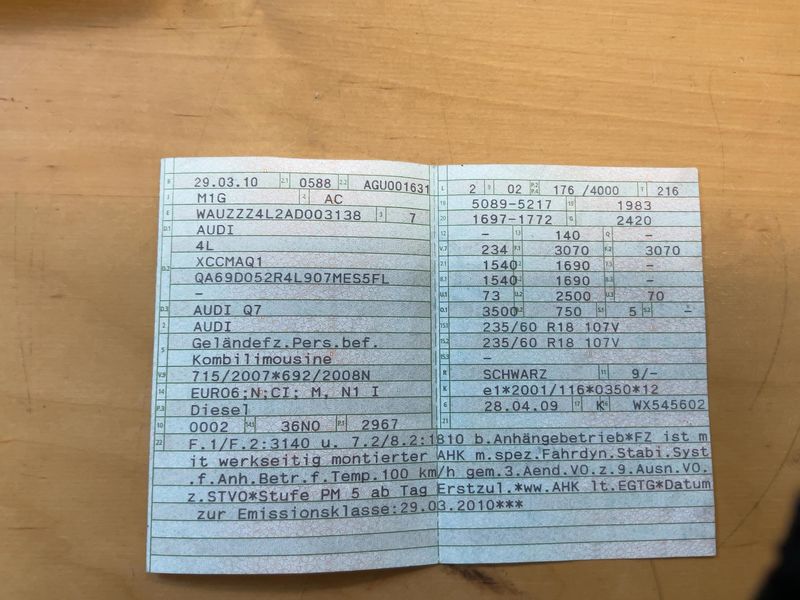 B 29.03.10 2.1 0588 2.2 AGU001631
J M1G 4 AC
E WAUZZZ4L2AD003138 3 7
D.1 AUDI
4L
D.2 XCCMAQ1
QA69D052R4L907MES5FL
–
D.3 AUDI Q7
2 AUDI
5 Geländefz.Pers.bef.
Kombilimousine
V.9 715/2007*692/2008N
14 EURO6;N;CI; M, N1 I
P.3 Diesel
10 0002 14.1 36N0 P.1 2967
L 2 9 02 P.2 P.4 176 /4000 T 216
18 5089-5217 19 1983
20 1697-1772 G 2420
12 – 13 140 Q –
V.7 234 F.1 3070 F.2 3070
7.1 1540 7.2 1690 7.3 –
8.1 1540 8.2 1690 8.3 –
U.1 73 U.2 2500 U.3 70
O.1 3500 O.2 750 S.1 5 S.2 –
15.1 235/60 R18 107V
15.2 235/60 R18 107V
15.3 –
R SCHWARZ 11 9/–
K e1*2001/116*0350*12
6 28.04.09 17 K 16 WX545602
21
22 F.1/F.2:3140 u. 7.2/8.2:1810 b.Anhängebetrieb*FZ ist m
it werkseitig montierter AHK m.spez.Fahrdyn.Stabi.Syst
.f.Anh.Betr.f.Temp.100 km/h gem.3.Aend.VO.z.9.Ausn.VO.
z.STVO*Stufe PM 5 ab Tag Erstzul.*ww.AHK lt.EGTG*Datum
zur Emissionsklasse:29.03.2010***